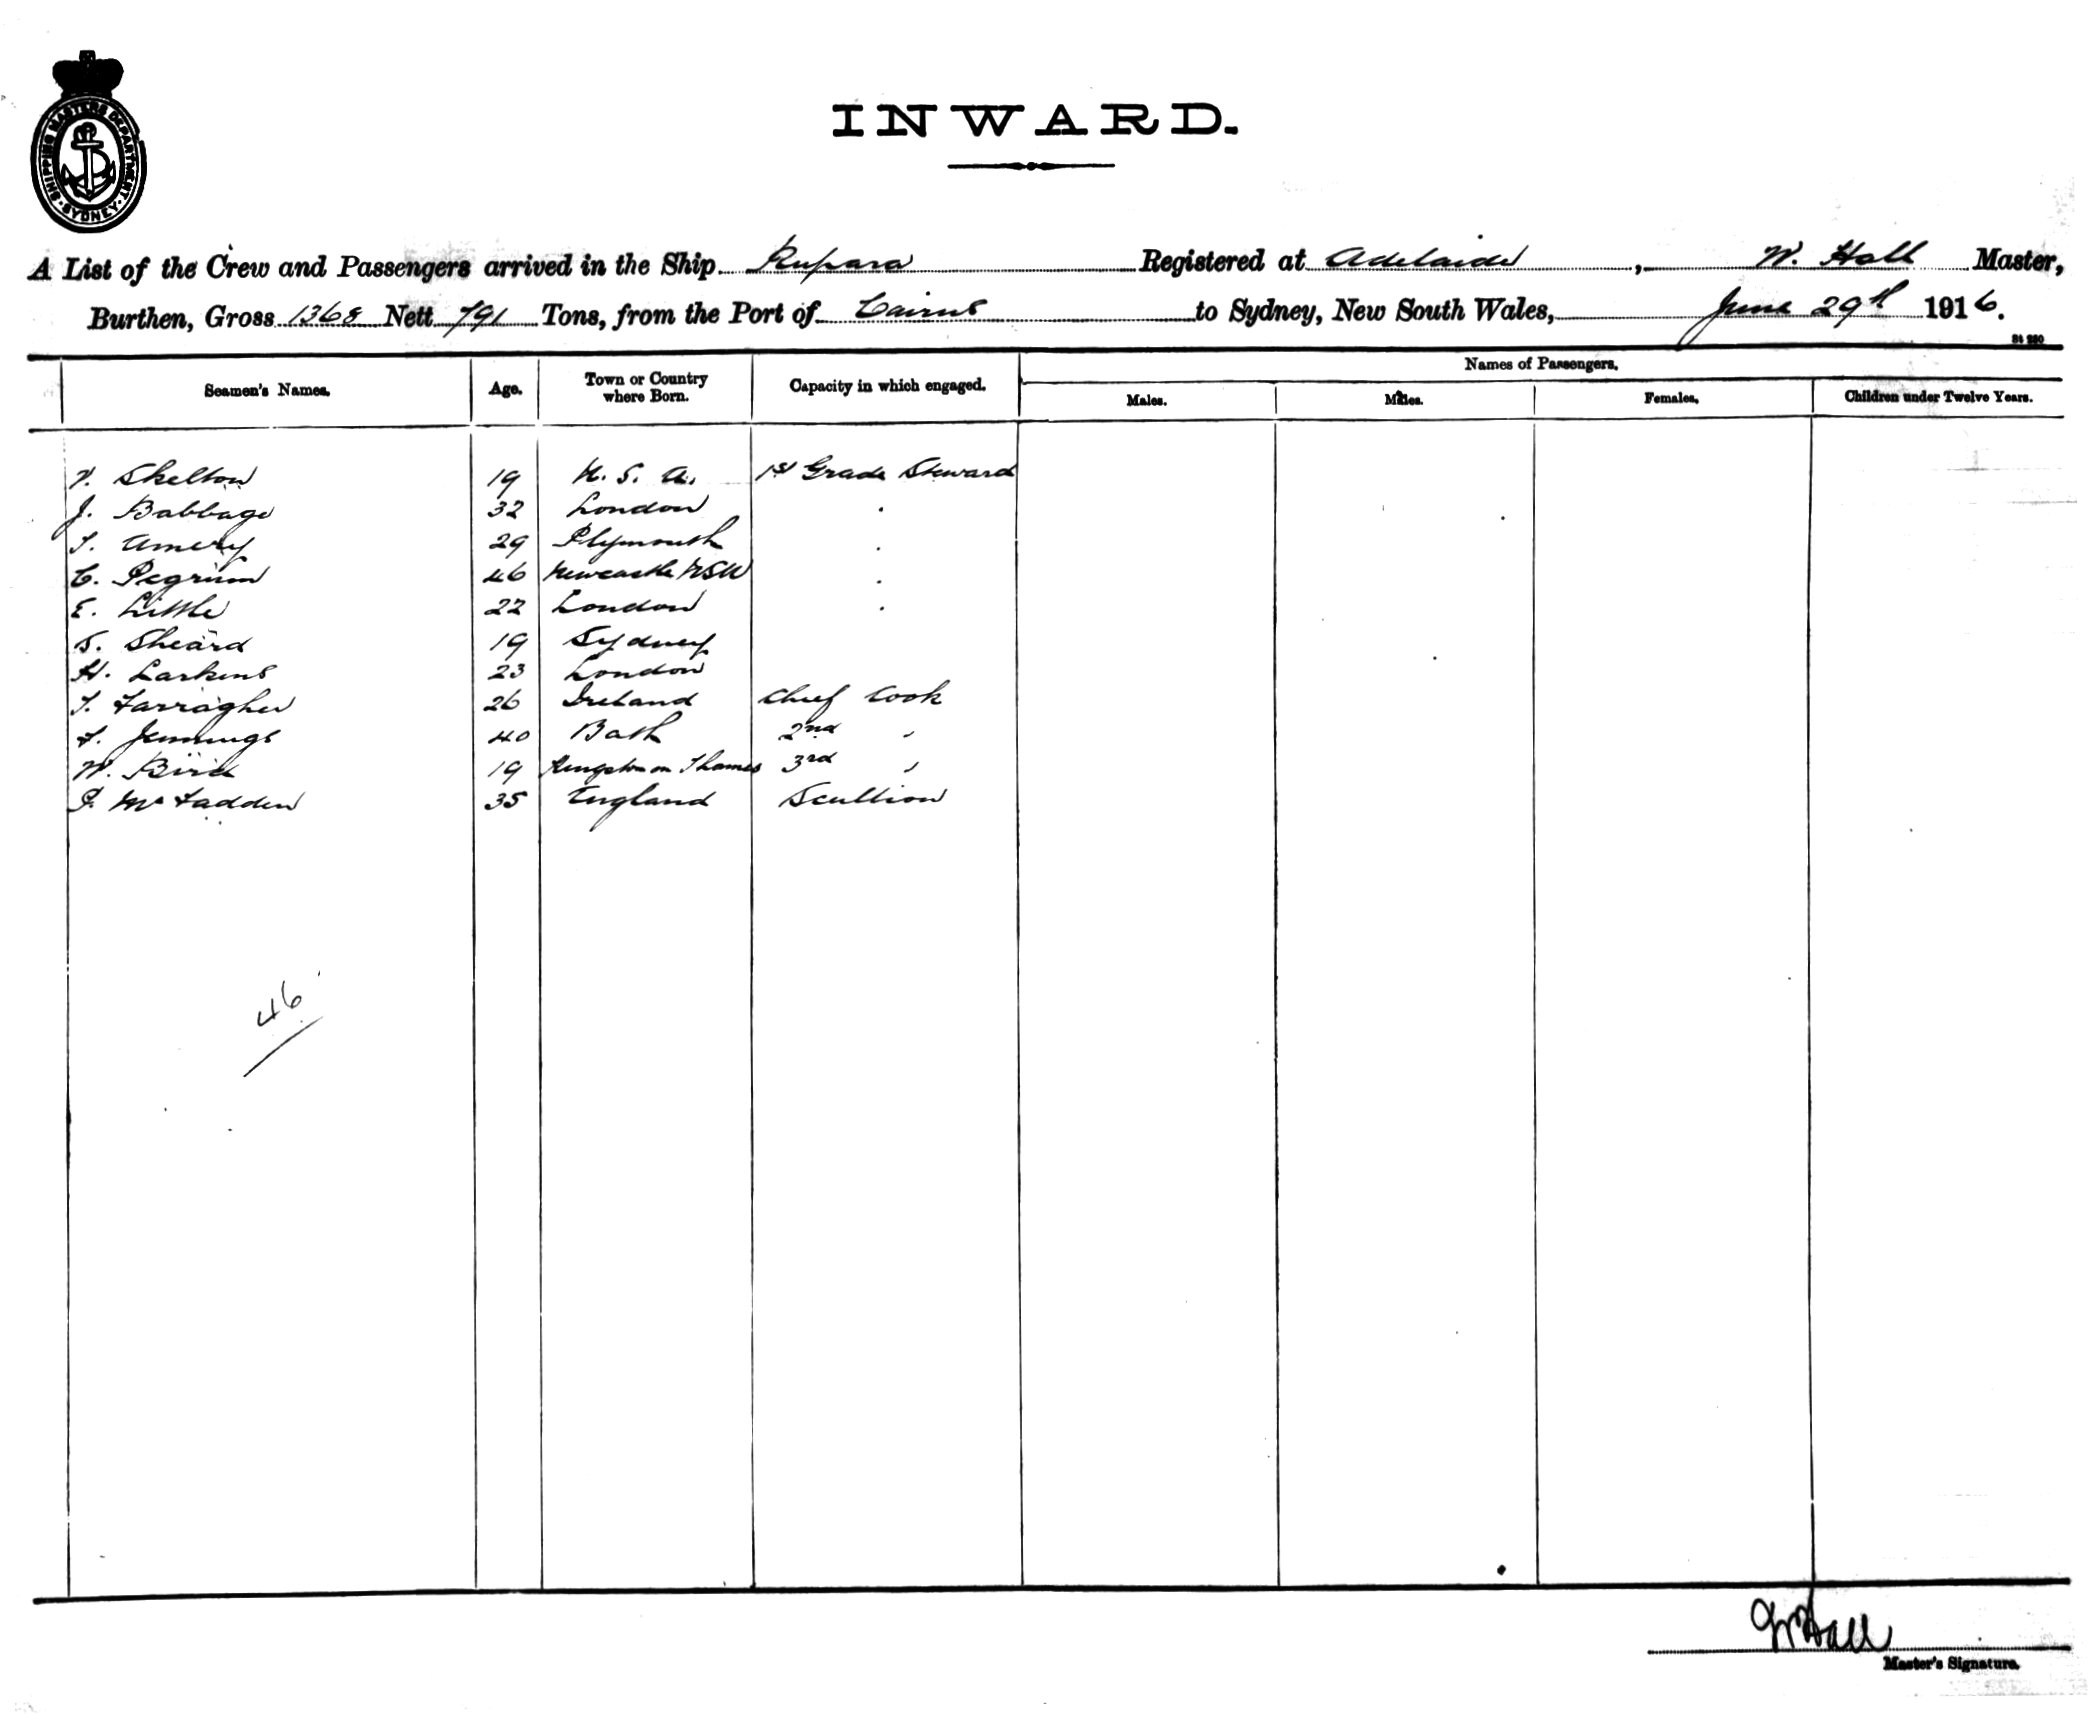 SHIPPING MASTERS DEPARTMENT. SYDNEY.
INWARD.
A List of the Crew and Passengers arrived in the Ship Rupara Registered at Adelaide, W. Hall Master,
Burthen, Gross 1368 Nett 791 Tons, from the Port of Cairns to Sydney, New South Wales, June 29th 1916.
St 230
Names of Passengers.
Seamen's Names. Age. Town or Country where Born. Capacity in which engaged. Males. Males. Females. Children under Twelve Years.
V. Skelton 19 U. S. A. 1st Grade Steward
J. Babbage 32 London
T. Amery 29 Plymouth
C. Pegrum 46 Newcastle NSW
E. Little 22 London
S. Sheard 19 Sydney
H. Larkins 23 London
T. Farragher 26 Ireland Chief Cook
F. Jennings 40 Bath 2nd "
W. Bird 19 Kingston on Thames 3rd "
P. McFadden 35 England Scullion
46
W Hall
Master's Signature.